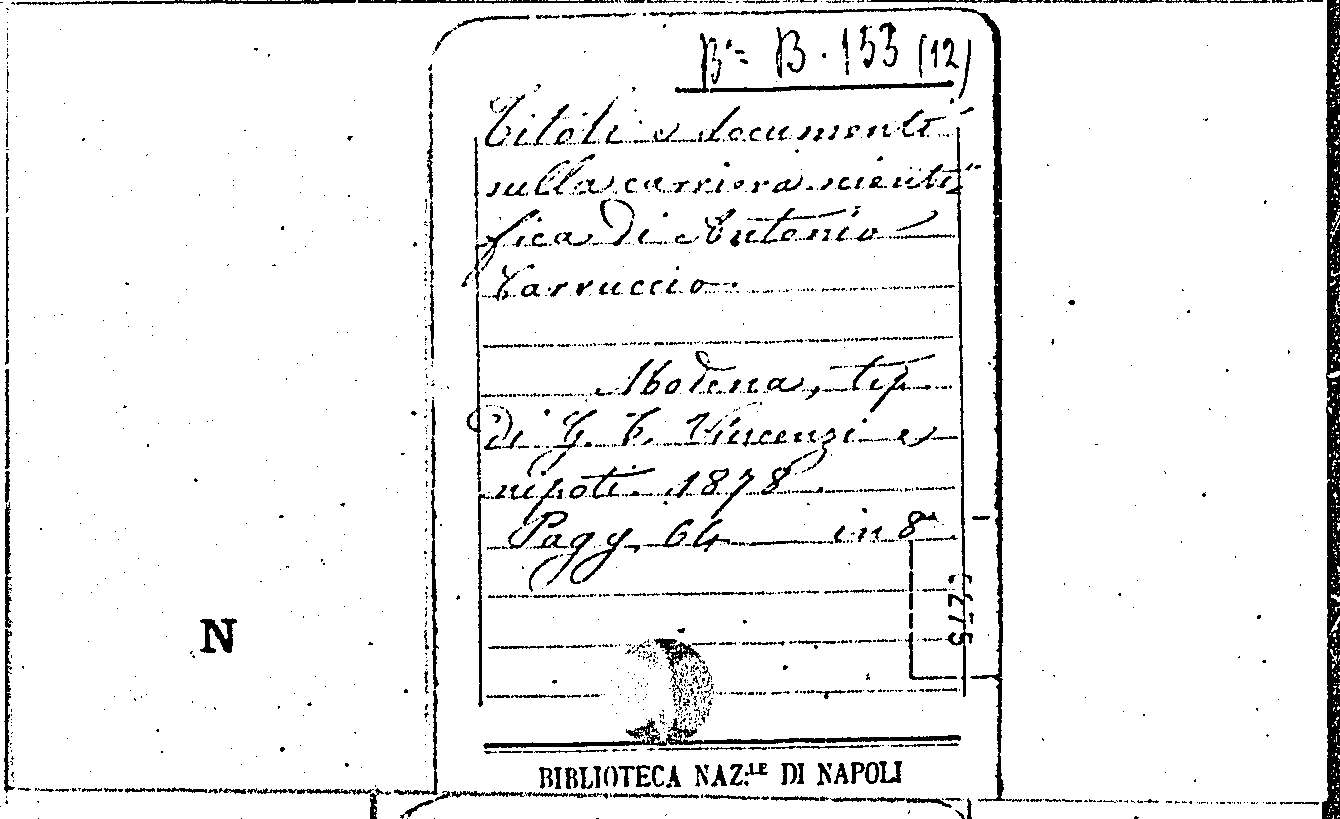 Bª= B.153 (12)
Titoli e documenti
sulla carriera scienti-
fica di Antonio
Carruccio.
Modena, tip.
di G. T. Vincenzi e
nipoti. 1878.
Pagg. 64 — in 8º
N
BIBLIOTECA NAZ:LE DI NAPOLI